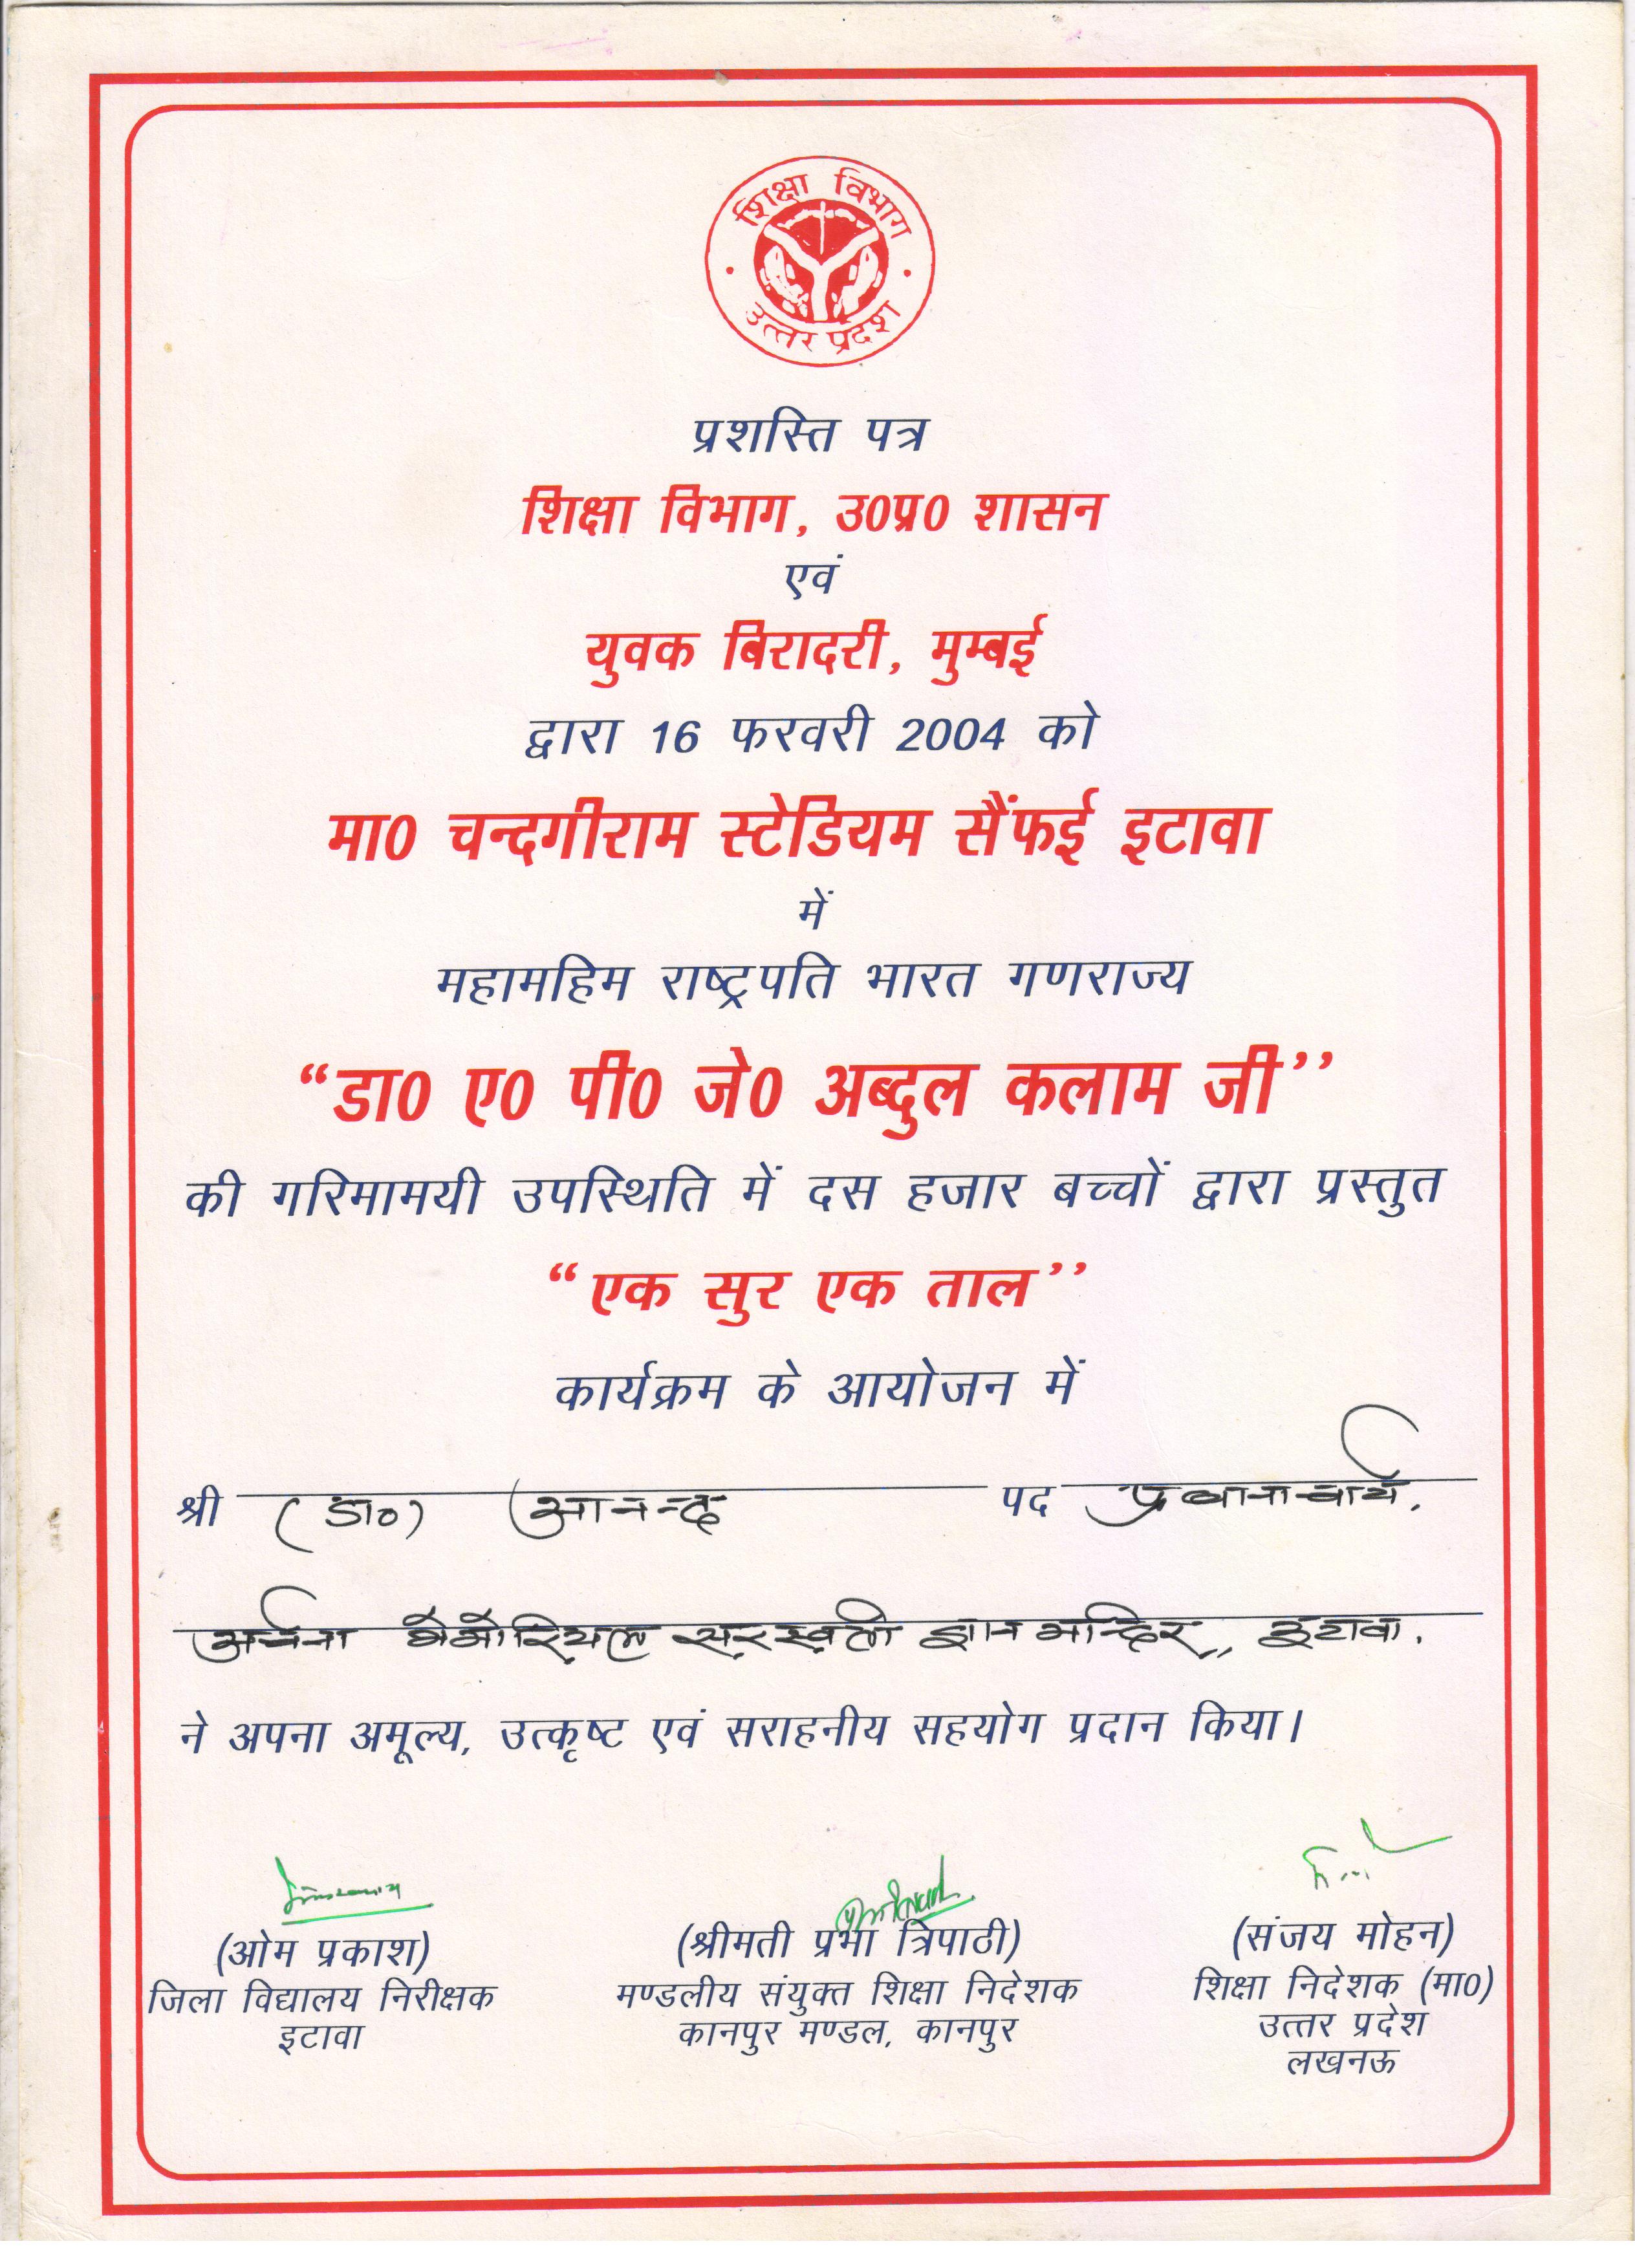 शिक्षा विभाग
उत्तर प्रदेश
प्रशस्ति पत्र
शिक्षा विभाग, उ0प्र0 शासन
एवं
युवक बिरादरी, मुम्बई
द्वारा 16 फरवरी 2004 को
मा0 चन्दगीराम स्टेडियम सैंफई इटावा
में
महामहिम राष्ट्रपति भारत गणराज्य
“डा0 ए0 पी0 जे0 अब्दुल कलाम जी”
की गरिमामयी उपस्थिति में दस हजार बच्चों द्वारा प्रस्तुत
“एक सुर एक ताल”
कार्यक्रम के आयोजन में
श्री (डा०) आनन्द पद प्रधानाचार्य.
अर्चना मैमोरियल सरस्वती ज्ञान मन्दिर,, इटावा.
ने अपना अमूल्य, उत्कृष्ट एवं सराहनीय सहयोग प्रदान किया।
(ओम प्रकाश) (श्रीमती प्रभा त्रिपाठी) (संजय मोहन)
जिला विद्यालय निरीक्षक मण्डलीय संयुक्त शिक्षा निदेशक शिक्षा निदेशक (मा0)
इटावा कानपुर मण्डल, कानपुर उत्तर प्रदेश
लखनऊ